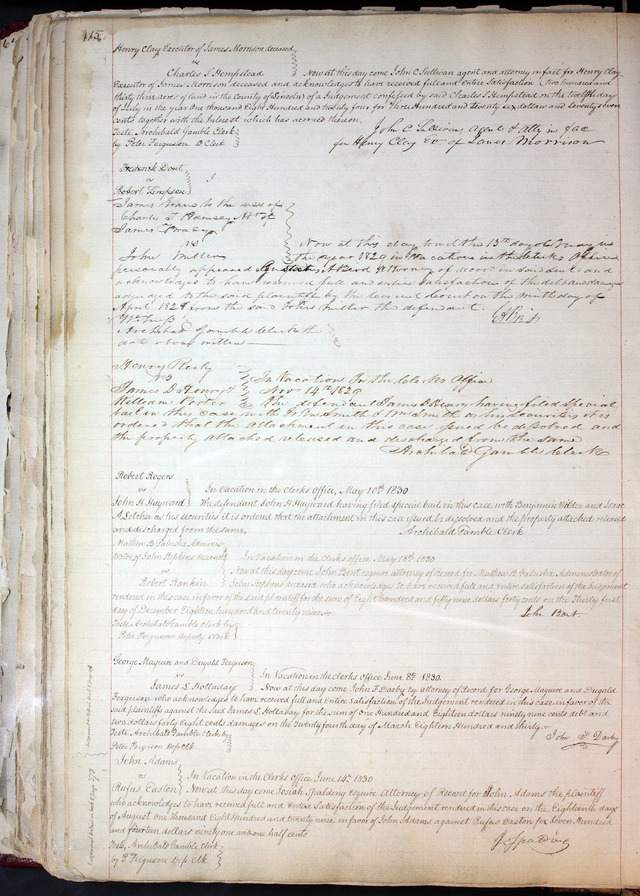 115
Henry Clay Executor of James Morrison deceased
vs
Charles S Hempstead Now at this day come John C Sullivan agent and attorney in fact for Henry Clay
Executor of James Morrison deceased and acknowledges to have received full and entire Satisfaction (two hundred and
thirty three acres of land in the County of Lincoln) of a Judgement confessed by said Charles S Hempstead on the twelfth day
of July in the year One thousand Eight Hundred and twenty four for Three Hundred and twenty six dollars and twenty seven
cents together with the Interest which has accrued thereon.
Teste Archibald Gamble Clerk John C Sullivan, Agent & Atty in fac
by Peter Ferguson D Clerk for Henry Clay Exr of James Morrison
Frederick Dent
vs
Robert Simpson
James Evans to the use of
Charles T Ramsey
James Tracy
vs Now at this day to wit the 13th day of May in
John Miller the year 1829 in vacation in the Clerks Office
personally appeared Gustavus A Bird attorney of record in said suit and
acknowledged to have received full and entire satisfaction of the debt and damages
adjudged to the said plaintiff by the circuit court on the ninth day of
April 1828 from the said John Miller the defendant.
Witness GA Bird
Archibald Gamble Clerk the
date above written
Henry Reily
vs In Vacation In the Clerks Office
James D Henry & Novr 14th 1829
William Porter The defendant James D Henry having filed Special
bail in this case with Smith & Wm Smith as his securities it is
ordered that the attachment in this case issued be disolved and
the property attached released and discharged from the same
Archibald Gamble Clerk
Robert Rogers
vs In Vacation in the Clerks Office, May 10th 1830
John H Hayward The defendant John H Hayward having filed special bail in this case with Benjamin Wilder and Isaac
A Letcher as his securities it is ordered that the attachment in this case issued be disolved and the property attached released
and discharged from the same. Archibald Gamble Clerk
Mathew B Galusha Adminis-
trator of John Stephens deceased In Vacation in the clerks office May 18th 1830
vs Now at this day come John Bent esquire attorney of Record for Mathew B Galusha Administrator of
Robert Rankin John Stephens deceased who acknowledges to have received full and entire satisfaction of the Judgement
rendered in this case in favor of the said plaintiff for the sum of Eight hundred and fifty nine dollars forty cents on the Thirty first
day of December Eighteen hundred and twenty nine.
Teste Archibald Gamble clerk by John Bent.
Peter Ferguson deputy clerk
George Maguire and Dugald Ferguson
vs In Vacation in the clerks Office June 8th 1830.
James S Holladay Now at this day come John F Darby by attorney of Record for George Maguire and Dugald
Ferguson who acknowledges to have received full and Entire Satisfaction of the Judgement rendered in this case in favor of the
said plaintiffs against the said James S Holladay for the sum of One Hundred and Eighteen dollars ninety nine cents debt and
two dollars forty Eight cents damages on the twenty fourth day of March Eighteen Hundred and thirty.
Teste Archibald Gamble clerk by John F Darby
Peter Ferguson dep Clk
John Adams
vs In Vacation in the Clerks Office June 14th 1830
Rufus Easton Now at this day come Josiah Spalding esquire Attorney of Record for John Adams the plaintiff
who acknowledges to have received full and Entire Satisfaction of the Judgement rendered in this case on the Eighteenth day
of August One thousand Eight Hundred and twenty nine in favor of John Adams against Rufus Easton for Seven Hundred
and fourteen dollars ninety one and one half cents
Teste, Archibald Gamble Clerk J Spalding
by P Ferguson Dep Clk